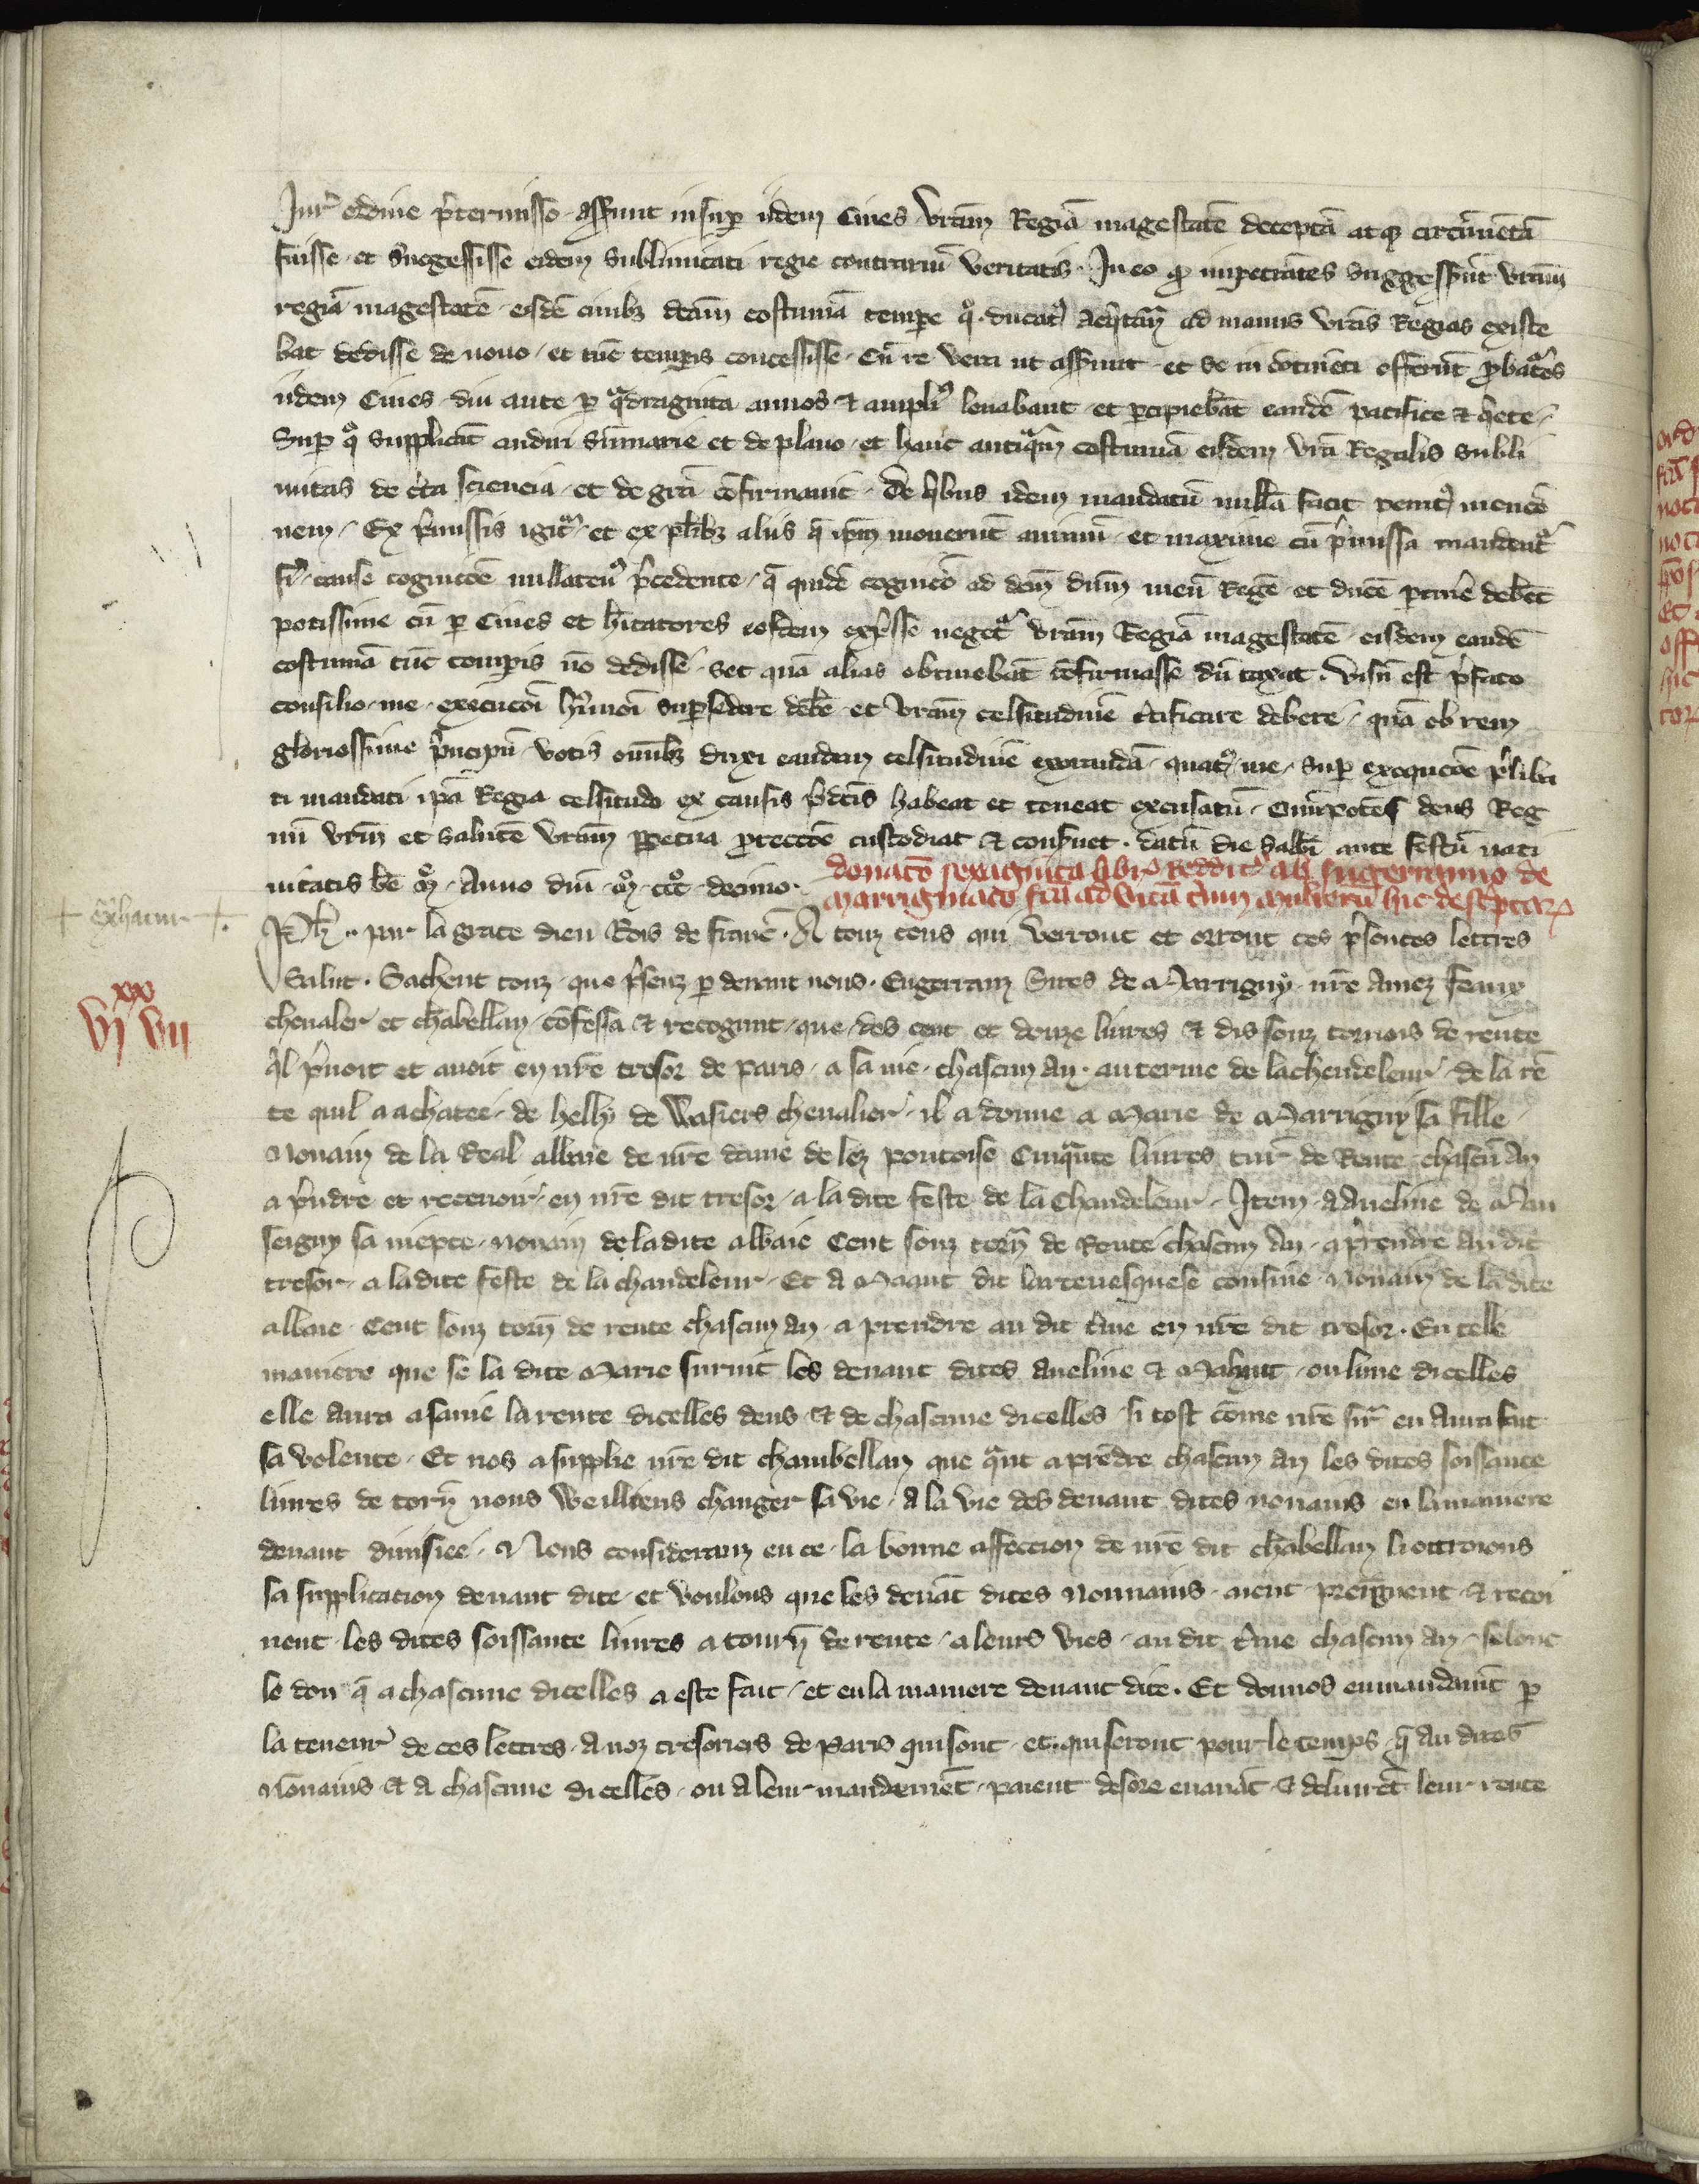 Jur̃ ordine p̃termisso asserunt insup̱ iidem Ciues vr̃am Regiã magestatẽ deceptã atq̃ circũuentã
fuisse et suggessisse eidem sublimitati regie contrariũ veritatis. In eo q̃ impetrãtes suggesserũt vr̃am
regiã magestatẽ eisdẽ ciuibꝫ dcãm costumã tempe qͦ ducatꝰ Aq̃tañ ad manus vr̃as Regias existe
bat dedisse de nouo et tũc tempis concessisse. Cũ re vera ut asserunt et se in cõtinẽti offerũt p̃baturos
iidem Ciues diu ante p̱ q̃draginta annos & amplꝰ leuabant et p̱cipiebãt eandẽ pacifice & q̃ete
Sup̱ qͦ supplicãt audiri sũmarie et de plano et hanc antiq̃m costumã eisdem vr̃a Regalis subli
mitas de c̃ta sciencia et de gr̃a cõfirmauit. De q̃bus idem mandatũ nullã facit penitꝰ mencõ
nem. Ex p̃missis igit̃ et ex pl̃ibꝫ aliis q̃ ip̃m mouerũt animũ et maxime cũ p̃missa mandent̃
fi͂ cause cognicõe nullatenꝰ p̃cedente q̃ quidẽ cognicõ ad dcm̃ dñm meũ Regẽ et ducẽ p̱tinẽ debet
potissime cũ p̱ Ciues et h̃itatores eosdem exp̃sse neget̃ vr̃am Regiã magestatẽ eisdem eandẽ
costumã tũc tempis nõ dedisse set quã alias obtinebãt cõfirmasse dũ taxat. Visũ est p̃fato
consilio me execucõi hꝰmoi sup̱sedere debẽ et Vr̃am celsitudinẽ c̃tificare debere quã ob rem
gloriossime p̃ncipũ votis om̃ibꝫ duxi eandem celsitudinẽ exorandã quatꝰ me sup̱ execucõe p̃liba
ti mandati ip̃a Regia celsitudo ex causis p̃dc̃is habeat et teneat excusatũ. Om̃ipotẽs deus Reg
nũ vr̃m et salutẽ vr̃am p̱petua p̃tectõe custodiat & conseruet. datũ die sabb̃i ante festũ nati
uitatis bẽ M̃. Anno dñi Mͦ. cccͦ. decimo.
donacõ sexaginta libr̃ Reddit̃ ab Ingeranno de
Marrigniaco fcã ad vitã triũ mulierũ hic descriptar̃
Ph̃. par la grace dieu Rois de franc̃. A touz ceus qui verront et orront ces p̃sentes lettres
Salut. Sachent touz que p̃senz p̱ deuant nous. Engerranz Sires de Marrigny nr̃e Amez feaux
cheualer et chãbellan, cõfessa & recognut, que des cent et douze liures & dis souz tornois de rente
q̃l p̃noit et auoit en nr̃e tresor de paris, a sa vie, chascun an. au terme de lachendeleur, de la rẽ
te quil a achatee, de helly de Wasiers cheualier, il a donne a Marie de Marrigny sa fille,
Nonain de la Real abbaie de nr̃e dame de lez pontoise Cinq̃nte liures tur̃ de Rente chascũ An
a p̃ndre et receuoir, en nr̃e dit tresor, a la dite feste de la Chandeleur. Item, a Aueline de Mau
seigny sa niepce, nonain de ladite abbaie Cent souz torñ de Rente chascun An, a prendre au dit
tresor, a ladite feste de la chandeleur. Et a Maaut dit larceuesquese cousine Nonain de la dite
abbaie Cent souz torñ de rente chascun an, a prendre au dit t̃me en nr̃e dit tresor. En telle
maniere que se la dite Marie suruit les deuant dites Aueline & Mahaut, ou lune dicelles
elle aura a sa vie la rente dicelles deus, & de chascune dicelles, si tost cõme nr̃e sir̃ en aura fait
sa volente. Et nos a supplie nr̃e dit chambellan que q̃nt a prẽdre chascun an les dites soissante
liures de torñ nous Weilliens changer sa vie, a la vie des deuant dites nonains en la maniere
deuant diuisiee. Nous consideranz en ce, la bonne affection de nr̃e dit chãbellan li ottroions
sa supplication deuant dite, et voulons que les deuãt dites Nonnains, aient, preignent, & recoi
uent, les dites soissante liures a tourñ de rente, a leurs vies, au dit t̃me chascun an, selonc
le don q̃ a chascune dicelles a este fait, et en la maniere deuant dite. Et donnos en mandamẽt p̱
la teneur de ces lettres, a noz tresoriers de Paris qui sont, et qui seront pour le temps, q̃ au dites
Nonains, & a chascune dicelles, ou a leur mandemẽt, paient desore enauãt & deliurẽt leur rente
+ Exhatur +
xx
vj vii